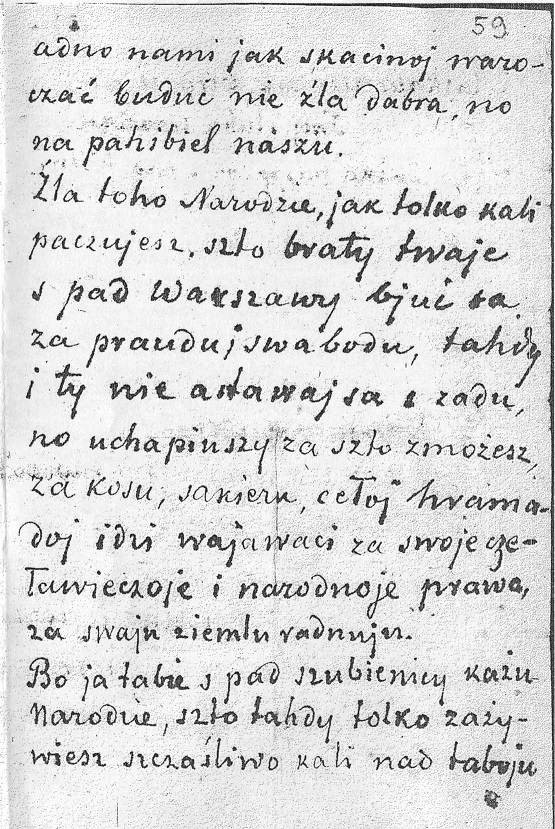 59
adno nami jak skacinoj waro-
czać buduć nie źla dabra, no
na pahibiel naszu.
Źla toho Narodzie, jak tolko kali
paczujesz, szto braty twaje
s pad Warszawy bjuć sa
za praudu j swabodu, tahdy
i ty nie astawajsa s zadu,
no uchapiuszy za szto zmożesz,
za kosu, sakieru, cełoj hrama-
doj idzi wajawaci za swoje cze-
ławieczoje i narodnoje prawo,
za swaju ziemlu radnuju.
Bo ja tabie s pad szubienicy każu
Narodzie, szto tahdy tolko zaży-
wiesz szczaśliwo kali nad taboju